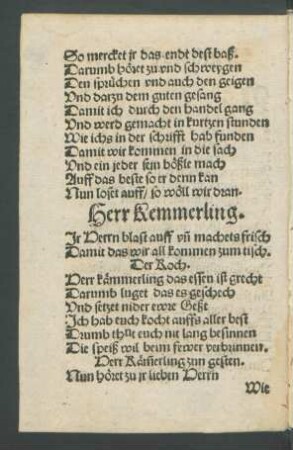 So mercket jr das endt dest baß.
Darumb höret zu vnd schweygen
Den sprüchen vnd auch den geigen
Vnd darzu dem guten gesang
Damit ich durch den handel gang
Vnd werd gemacht in kurtzen stunden
Wie ichs in der schrifft hab funden
Damit wir kommen in die sach
Vnd ein jeder sein bößle mach
Auff das beste so er denn kan
Nun loset auff/ so wöll wir dran.
Herr Kemmerling.
Jr Herrn blast auff vñ machets frisch
Damit das wir all kommen zum tisch.
Der Koch.
Herr kämmerling das essen ist grecht
Darumb luget das es geschech
Vnd setzet nider ewre Geßt
Ich hab euch kocht auffs aller best
Drumb thut euch nit lang besinnen
Die speiß wil beim fewer verbrinnen.
Herr Kämerling zun gesten.
Nun höret zu jr lieben Herrn
Wie